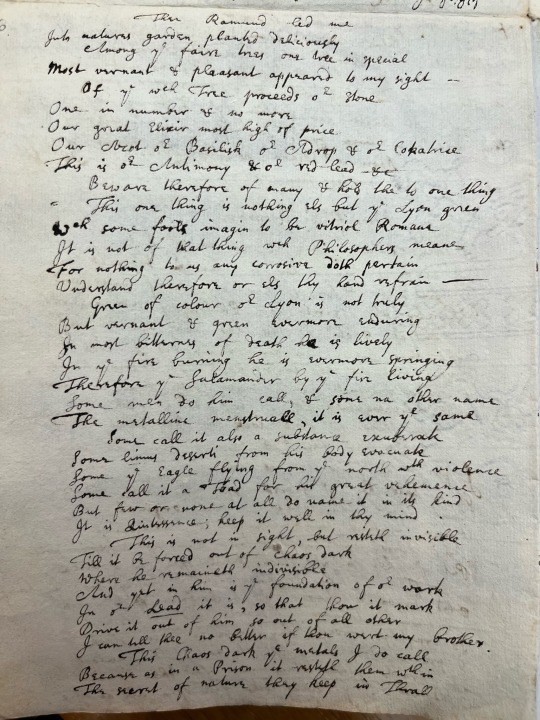 Then Ramund led me
Into natures garden planted deliciously
Among yͤ faire trees one tree in special
Most vernant & pleasant appeared to my sight —
Of yͤ wch Tree proceeds oͬ stone
One in number & no more
Our great Elixir most high of price
Our Azot oͬ Basilisk oͬ Adrop & oͬ Cokatrice
This is oͬ Antimony & oͬ red lead &c
Beware therefore of many & hold the to one thing
This one thing is nothing els but yͤ Lyon green
Wch some fools imagin to be vitriol Romane
It is not of that thing wch Philosophers meane
For nothing to us any corrosive doth pertain
Understand therefore or els thy hand refrain —
Green of colour oͬ Lyon is not truly
But vernant & green evermore enduring
In most bitternes of death he is lively
In yͤ fire burning he is evermore springing
Therefore yͤ Salamander by yͤ fire living
Some men do him call, & some na other name
The metalline menstruall, it is ever yͤ same
Some call it also a substance exuberate
Some limus deserti from his body evacuate
Some yͤ Eagle flying from yͤ north wth violence
Some call it a Toad for his great vehemence
But few or none at all do name it in its kind
It is Quintessence; keep it well in thy mind
This is not in sight, but resteth invisible
Till it be forced out of Chaos dark
Where he remaineth indivisible
And yet in him is yͤ foundation of oͬ work
In oͬ Lead it is, so that thou it mark
Drive it out of him so out of all other
I can tell thee no better if thou wert my brother.
This Chaos dark yͤ metals I do call
Because as in a Prison it resteth them wthin
The secret of nature they keep in Thrall